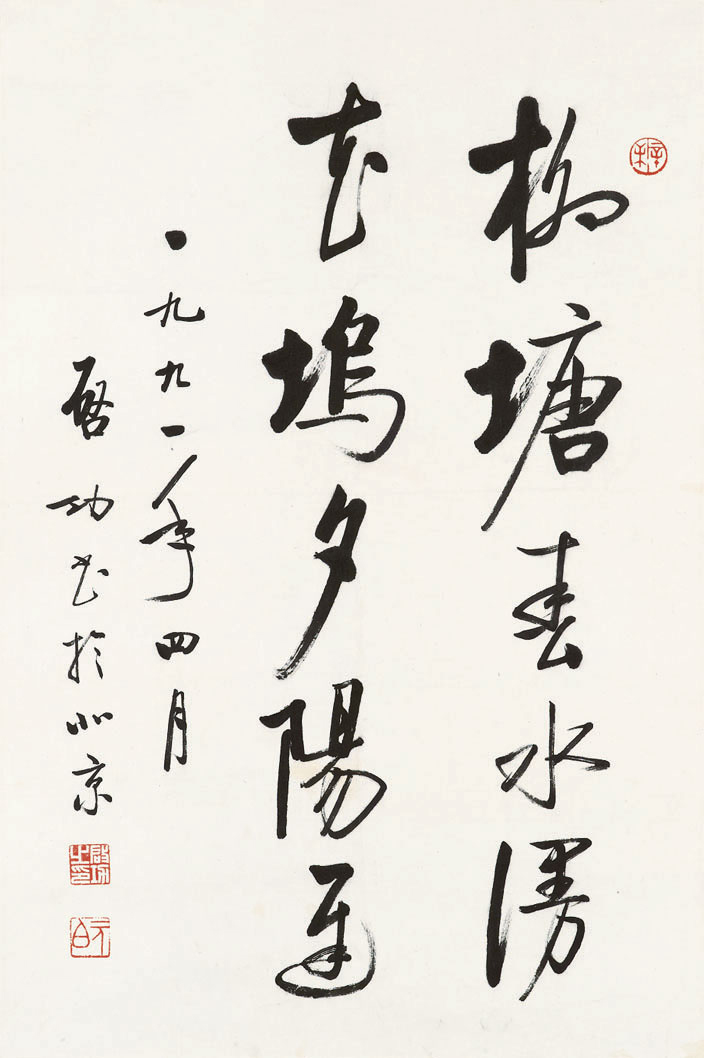 柳塘春水漫
花塢夕陽遲
一九九一年四月
啓功書於北京
啓功之印
元白